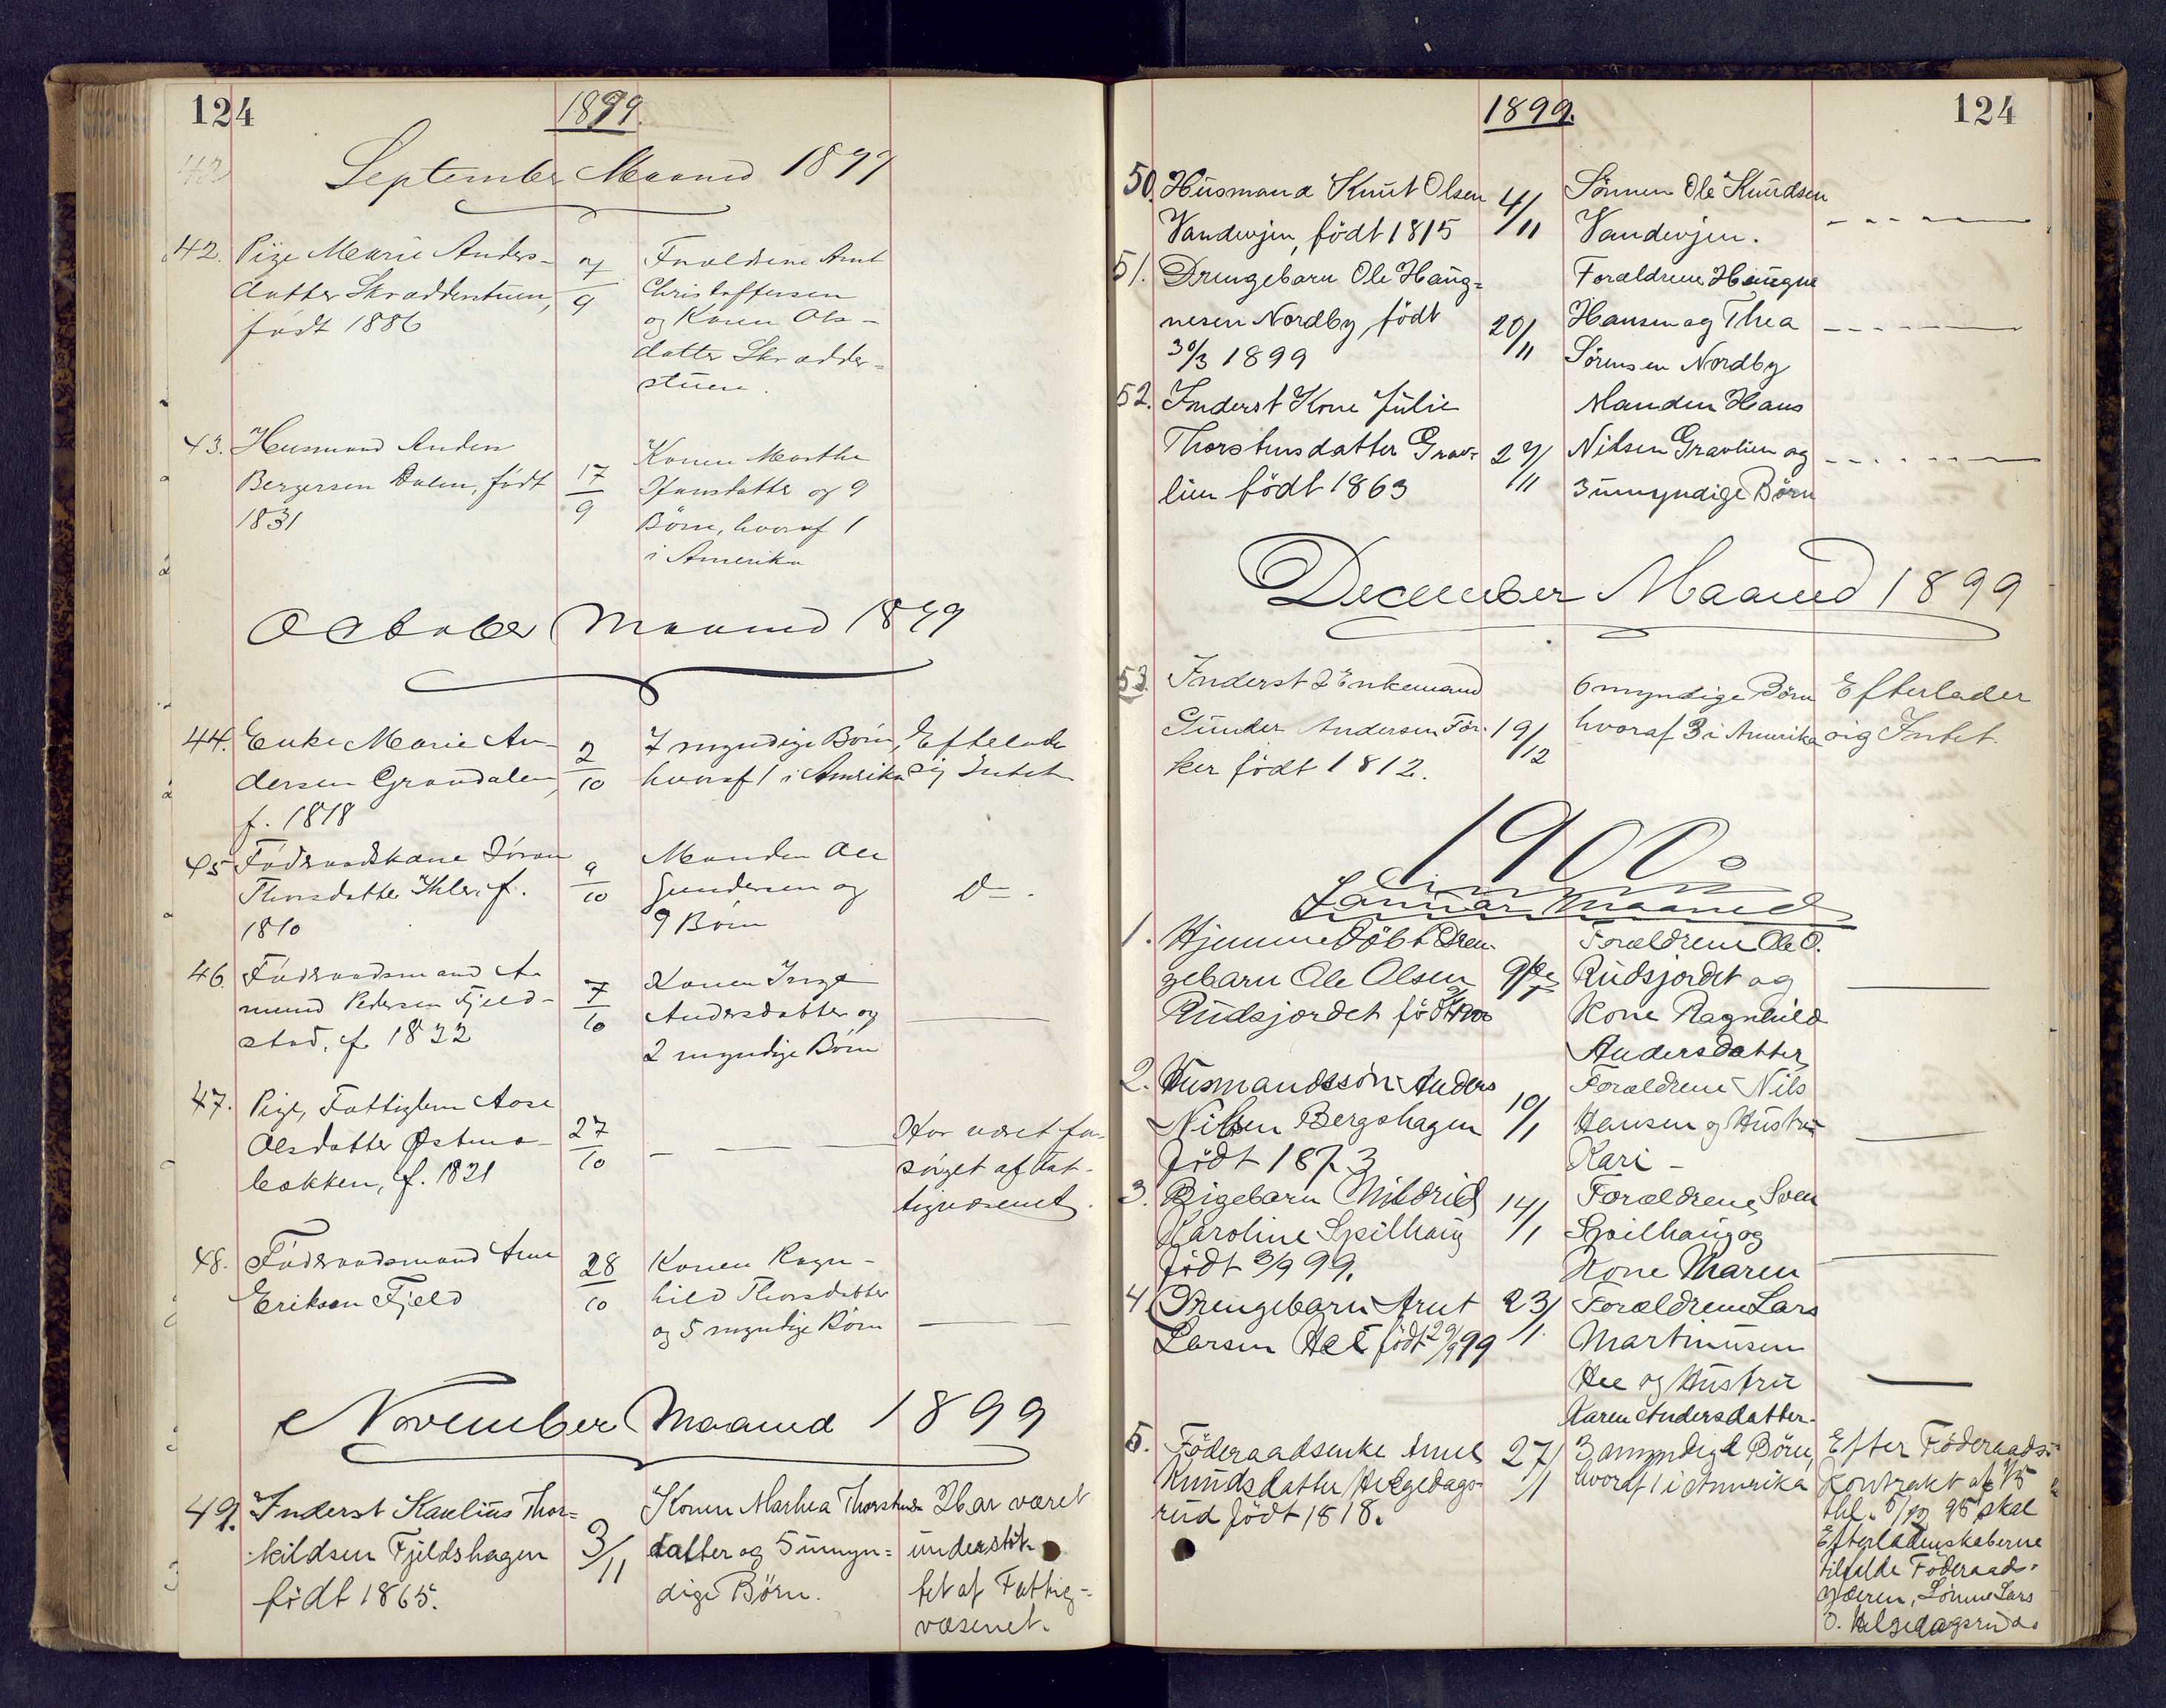 124
1899.
September Maaned 1899
42. Pige Marie Anders-
datter Skrædderstuen,
født 1886
7/9
Forældrene Arnt
Christoffersen
og Karen Ols-
datter Skrædder-
stuen.
43. Husmand Anders
Bergersen Dalen, født
1831
17/9
Konen Marthe
Hansdatter og 9
Børn, hvoraf 1
i Amerika
October Maaned 1899
44. Enke Marie An-
dersen Grandalen,
f. 1818
2/10
7 myndige Børn,
hvoraf 1 i Amrika
Eftelader
sig Intet
45 Föderaadskone Jöran
Thorsdatter Ihler, f.
1810
9/10
Manden Ole
Gundersen og
9 Børn
Do
46. Föderaadsmand A-
mund Pedersen Fjeld-
stad, f. 1822
7/10
Konen Inge
Andersdatter og
2 myndige Børn
47. Pige, Fattiglem Aase
Olsdatter Østmo-
bakken, f. 1821
27/10
Har været for-
sörget af Fat-
tigvæsenet.
48. Föderaadsmand Arne
Eriksen Fjeld
28/10
Konen Ragn-
hild Thorsdatter
og 5 myndige Børn
November Maaned 1899
49. Inderst Karelius Thor=
kildsen Fjeldshagen
født 1865.
3/11
Konen Marthea Thorstens
datter og 5 umyn=
dige Börn.
Har været
understöt-
tet af Fattig-
væsenet.
1899.
124
50. Husmand Knut Olsen
Vandevjen, født 1815
4/11
Sönnen Ole Knudsen
Vandevjen.
51. Drengebarn Ole Haug=
nesen Nordby, født
30/3 1899
20/11
Forældrene Haugne
Hansen og Thea
Sörensen Nordby
52. Inderst Kone Julie
Thorstensdatter Grav=
lien født 1863
27/11
Manden Hans
Nilsen Gravlien og
3 umyndige Børn
December Maaned 1899
53. Inderst & Enkemand
Gunder Andersen För-
ker født 1812.
19/12
6 myndige Börn
hvoraf 3 i Amerika
Efterlader
sig Intet.
1900.
Januar Maaned
1. Hjemmedöbt Dren-
gebarn Ole Olsen
Rudsjordet född
Forældrene Ole O.
Rudsjordet og
Kone Ragnhild
Andersdatter
2. Husmandssön Anders
Nilsen Bergshagen
født 1873
10/1
Forældrene Nils
Hansen og Hustru
Kari -
3. Pigebarn Mildrid
Karoline Spilhaug
födt 3/9 99.
14/1
Forældrene Sven
Spilhaug og
Kone Maren
4. Drengebarn Arnt
Larsen Hee födt 29/9 99
23/1.
Forældrene Lars
Martinusen
Hee og Hustru
Karen Andersdatter.
5. Föderaadsenke Anne
Knudsdatter Helgedags-
rud født 1818.
27/1
3 myndige Börn,
hvoraf 1 i Amerika
Efter Föderaads-
Kontrakt af
skal
Efterladenskaberne
tilfalde Föderaads-
gderen, Sönnen Lars
O. Helgedagsrud.